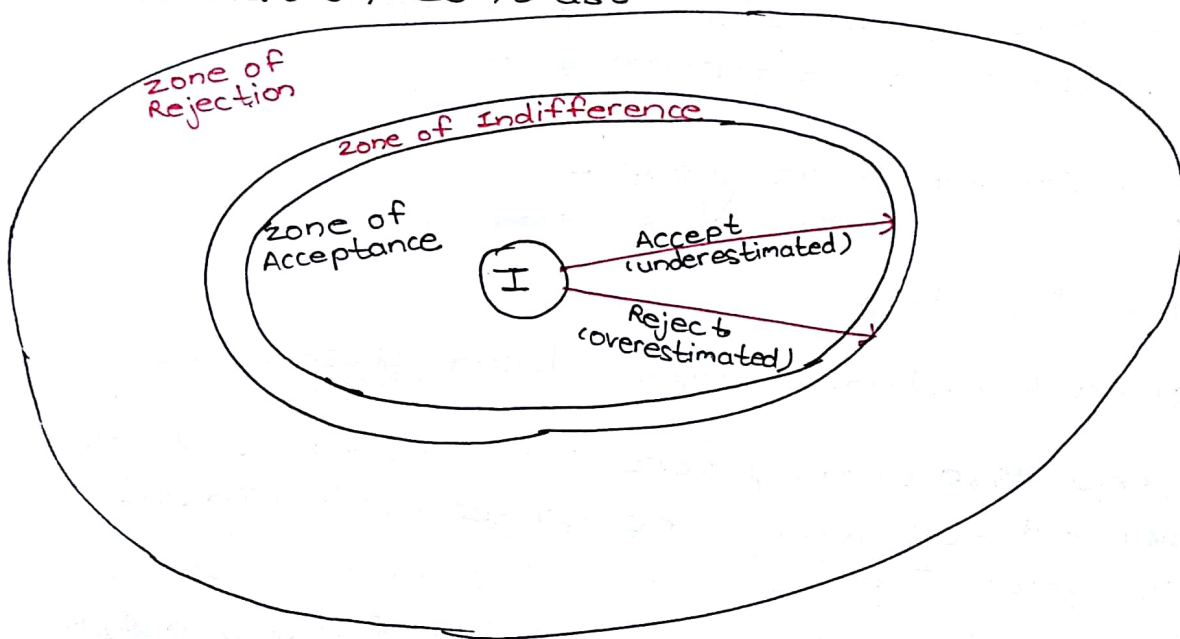 zone of
Rejection
zone of Indifference
zone of
Acceptance
I
Accept
(underestimated)
Reject
(overestimated)